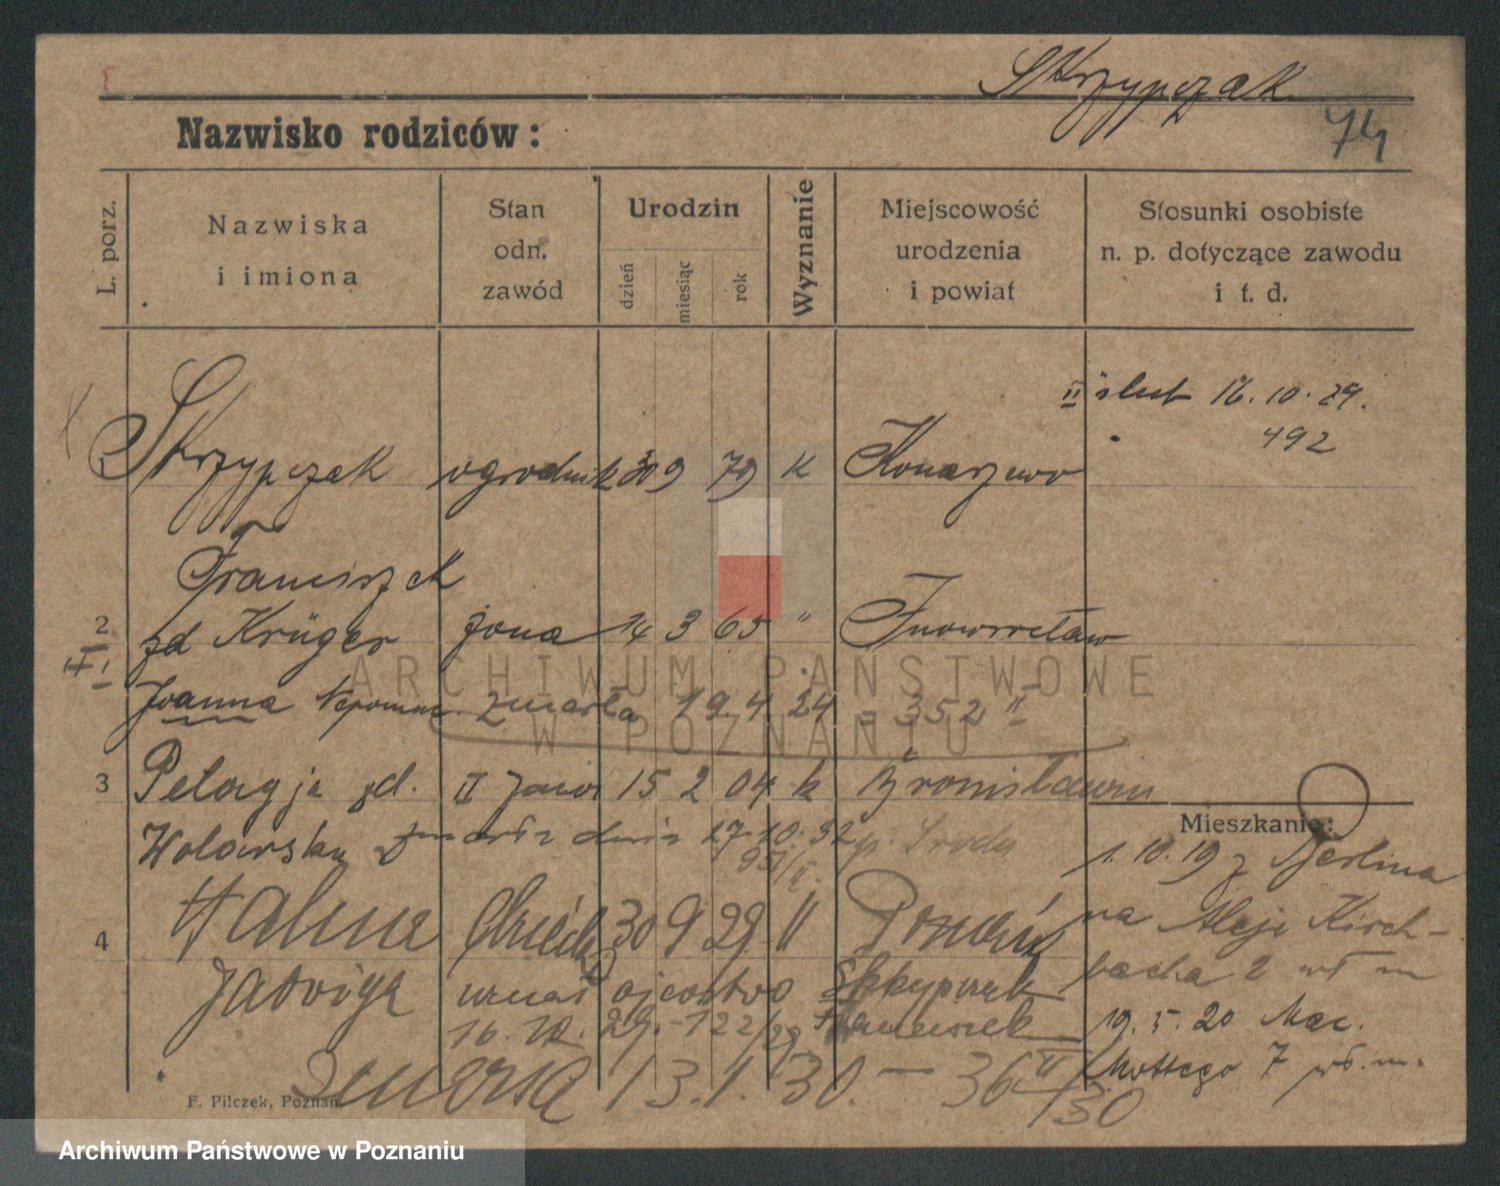 Skrzypczak
74
Nazwisko rodziców:
L. porz.
Nazwiska
i imiona
Stan
odn.
zawód
Urodzin
dzień
miesiąc
rok
Wyznanie
Miejscowość
urodzenia
i powiat
Stosunki osobiste
n. p. dotyczące zawodu
i t. d.
II ślub 16. 10. 29.
492
Skrzypczak ogrodnik 30 9 79 k Konarzewo
Franciszek
2 zd Krüger żona 14 3 65 " Inowrocław
I
Joanna Nepomuc. zmarła 19. 4 24 - 352 II
3 Pelagja zd. II żona 15 2 04 k Bronisławiu
Wolarska zmarła dnia 27. 10. 32 p. Środa
Mieszkanie:
1. 10. 19 z Berlina
4 Halina 30 9 29 " Poznań
na Aleje Kirch-
bacha 2
Jadwiga uznał ojcostwo Skrzypczak
16. 10. 29. - 122/29 Franciszek
19. 5. 20 Mac.
Mottego 7
Zmarła 13. 1. 30. — 36 II/30
F. Pilczek, Poznań
ARCHIWUM PAŃSTWOWE
W POZNANIU
Archiwum Państwowe w Poznaniu